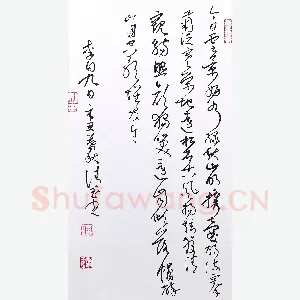 今日云景好水绿秋山明携壶酌流霞
搴菊泛寒荣地远松石古风扬弦管清
窥觞照欢颜独笑还自倾落帽醉
山月空歌怀友生
李白九日辛丑
Shufawang.CN